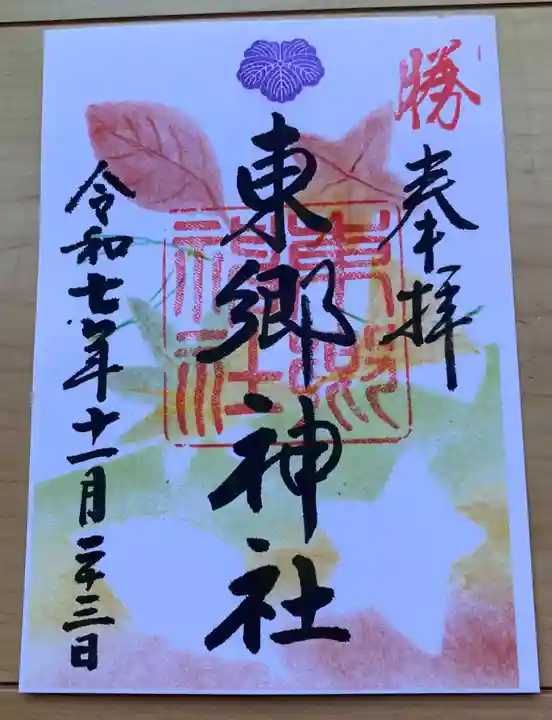 勝
奉拝
東郷神社
東郷神社
令和七年十一月二十三日